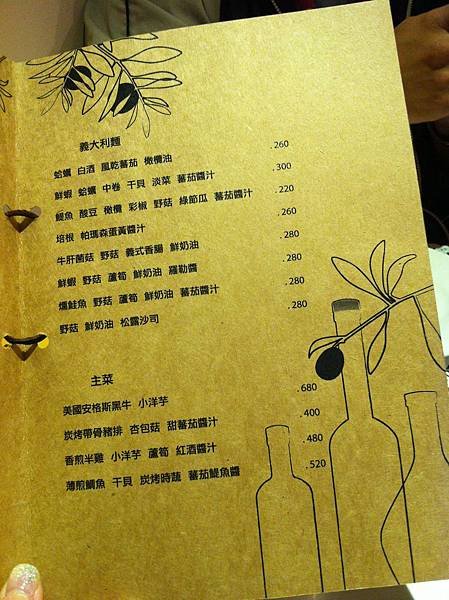 義大利麵
蛤蠣 白酒 風乾蕃茄 橄欖油 .260
鮮蝦 蛤蠣 中卷 干貝 淡菜 蕃茄醬汁 .300
鯷魚 酸豆 橄欖 彩椒 野菇 綠節瓜 蕃茄醬汁 .220
培根 帕瑪森蛋黃醬汁 .260
牛肝菌菇 野菇 義式香腸 鮮奶油 .280
鮮蝦 野菇 蘆筍 鮮奶油 羅勒醬 .280
燻鮭魚 野菇 蘆筍 鮮奶油 蕃茄醬汁 .280
野菇 鮮奶油 松露沙司 .280
主菜
美國安格斯黑牛 小洋芋 .680
炭烤帶骨豬排 杏包菇 甜蕃茄醬汁 .400
香煎半雞 小洋芋 蘆筍 紅酒醬汁 .480
薄煎鯛魚 干貝 炭烤時蔬 蕃茄鯷魚醬 .520